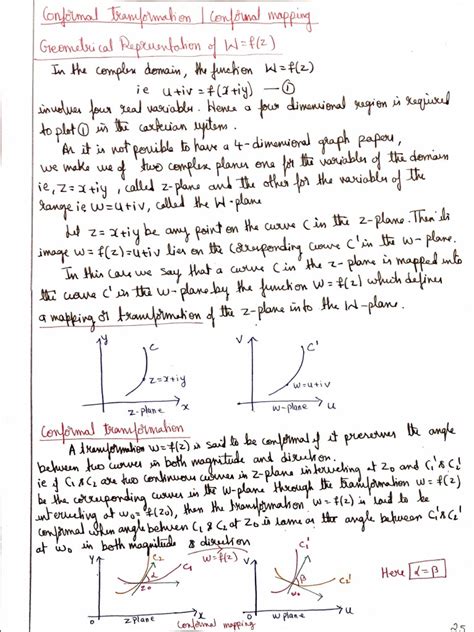 Conformal Transformation | Conformal mapping
Geometrical Representation of W=f(z)
In the complex domain, the function W=f(z)
ie u+iv = f(x+iy) — ①
involves four real variable. Hence a four dimensional region is required
to plot ① in the cartesian system.
As it is not possible to have a 4-dimensional graph papers,
we make use of two complex planes one for the variables of the domain
ie, z = x+iy, called z-plane and the other for the variables of the
range ie w = u+iv, called the W-plane
Let z = x+iy be any point on the curve C in the z-plane. Then its
image w = f(z)=u+iv lies on the corresponding curve C' in the w-plane.
In this case we say that a curve C in the z-plane is mapped into
the curve C' in the w-plane by the function W = f(z) which defines
a mapping or transformation of the z-plane into the W-plane.
y C V C'
z=x+iy w=u+iv
z-plane x w-plane u
Conformal transformation
A transformation w=f(z) is said to be conformal if it preserves the angle
between two curves in both magnitude and direction.
ie if C₁ & C₂ are two continuous curves in z-plane intersecting at z₀ and C₁' & C₂'
be the corresponding curves in the W-plane through the transformation w = f(z)
intersecting at w₀ = f(z₀), then the transformation w = f(z) is said to be
conformal when angle between C₁ & C₂ at z₀ is same as the angle between C₁' & C₂'
at w₀ in both magnitude & direction
Y C₂ C₁ w=f(z) V C₁' C₂'
α z₀ β w₀ Here α = β
z plane x w plane u
Conformal mapping
25